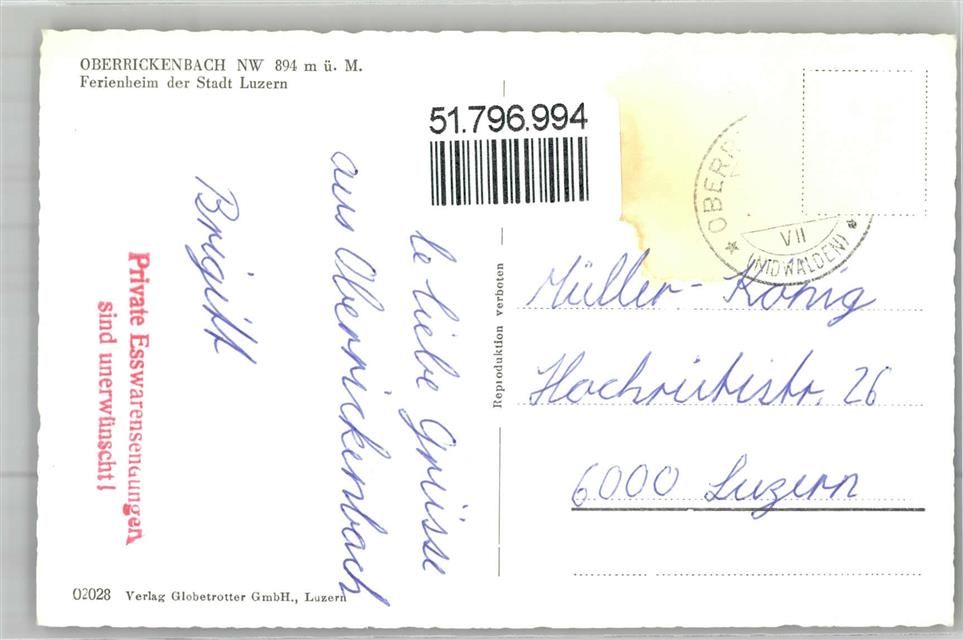 OBERRICKENBACH NW 894 m ü. M.
Ferienheim der Stadt Luzern
51.796.994
le liebe Grüsse
aus Oberrickenbach
Brigitt
Private Esswarensendungen
sind unerwünscht!
Reproduktion verboten
OBERR
VII
(NIDWALDEN)
Müller-König
Hochrütistr. 26
6000 Luzern
02028 Verlag Globetrotter GmbH., Luzern